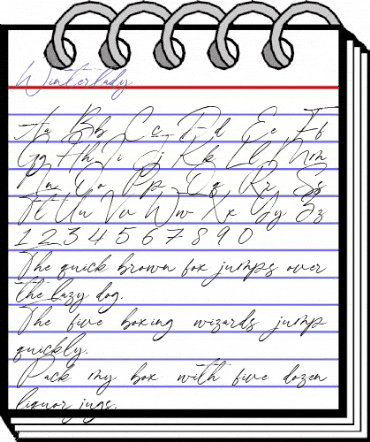 Winterlady
Aa Bb Cc Dd Ee Ff
Gg Hh Ii Jj Kk Ll Mm
Nn Oo Pp Qq Rr Ss
Tt Uu Vv Ww Xx Yy Zz
1 2 3 4 5 6 7 8 9 0
The quick brown fox jumps over
the lazy dog.
The five boxing wizards jump
quickly.
Pack my box with five dozen
liquor jugs.